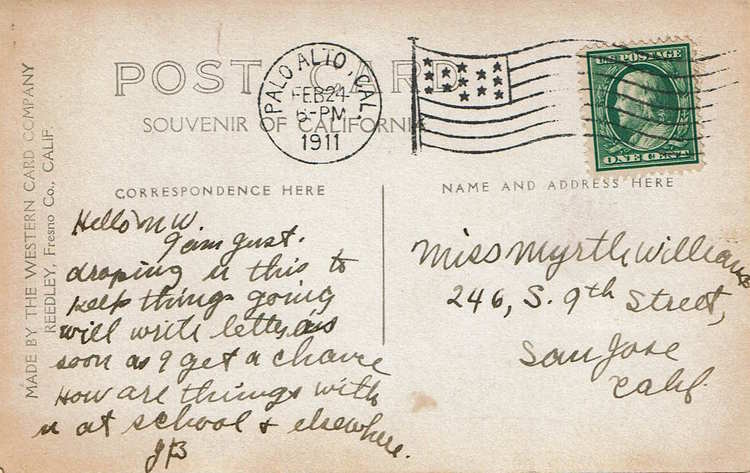 POST CARD
SOUVENIR OF CALIFORNIA
PALO ALTO, CAL.
FEB 24
6-PM
1911
U.S. POSTAGE
ONE CENT
MADE BY THE WESTERN CARD COMPANY
REEDLEY, Fresno Co., CALIF.
CORRESPONDENCE HERE
NAME AND ADDRESS HERE
Hello M W.
I am gust.
droping u this to
keep things going
will write letter as
soon as I get a chance
How are things with
u at school & elsewhere.
JB
Miss Myrtle Williams
246, S. 9th Street,
San Jose
Calif.